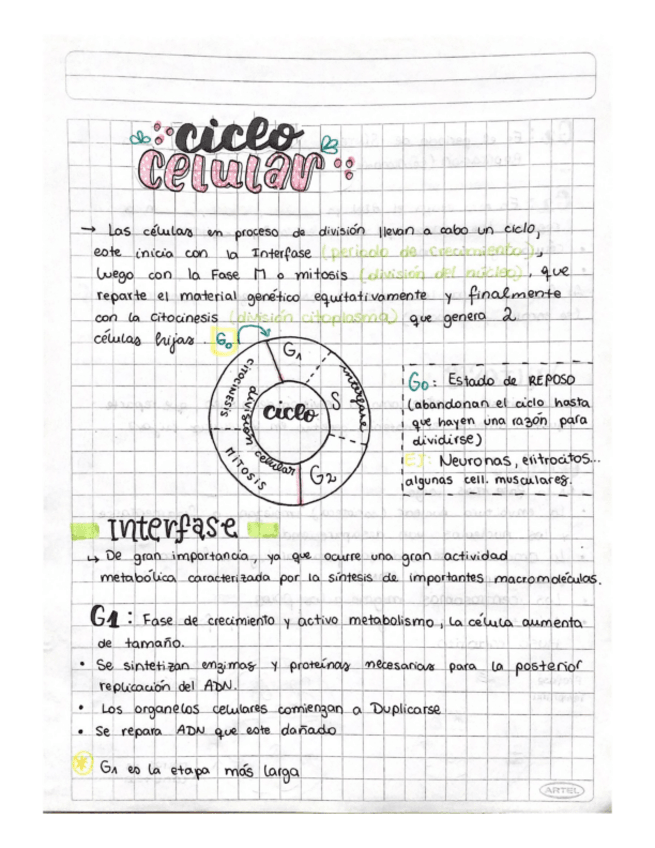 ciclo
celular
→ Las células en proceso de división llevan a cabo un ciclo,
este inicia con la Interfase (periodo de crecimiento),
luego con la Fase M o mitosis (división del núcleo), que
reparte el material genético equitativamente y finalmente
con la citocinesis (división citoplasma) que genera 2
células hijas. G0
G1
interfase
S
G2
citocinesis
división celular
MITOSIS
ciclo
G0: Estado de REPOSO
(abandonan el ciclo hasta
que hayen una razón para
dividirse)
EJ: Neuronas, elitrocitos...
algunas cell. musculares.
Interfase
↳ De gran importancia, ya que ocurre una gran actividad
metabólica caracterizada por la síntesis de importantes macromoléculas.
G1: Fase de crecimiento y activo metabolismo, la célula aumenta
de tamaño.
• Se sintetizan enzimas y proteínas necesarias para la posterior
replicación del ADN.
• Los organelos celulares comienzan a Duplicarse
• Se repara ADN que este dañado
* G1 es la etapa más larga
ARTEL